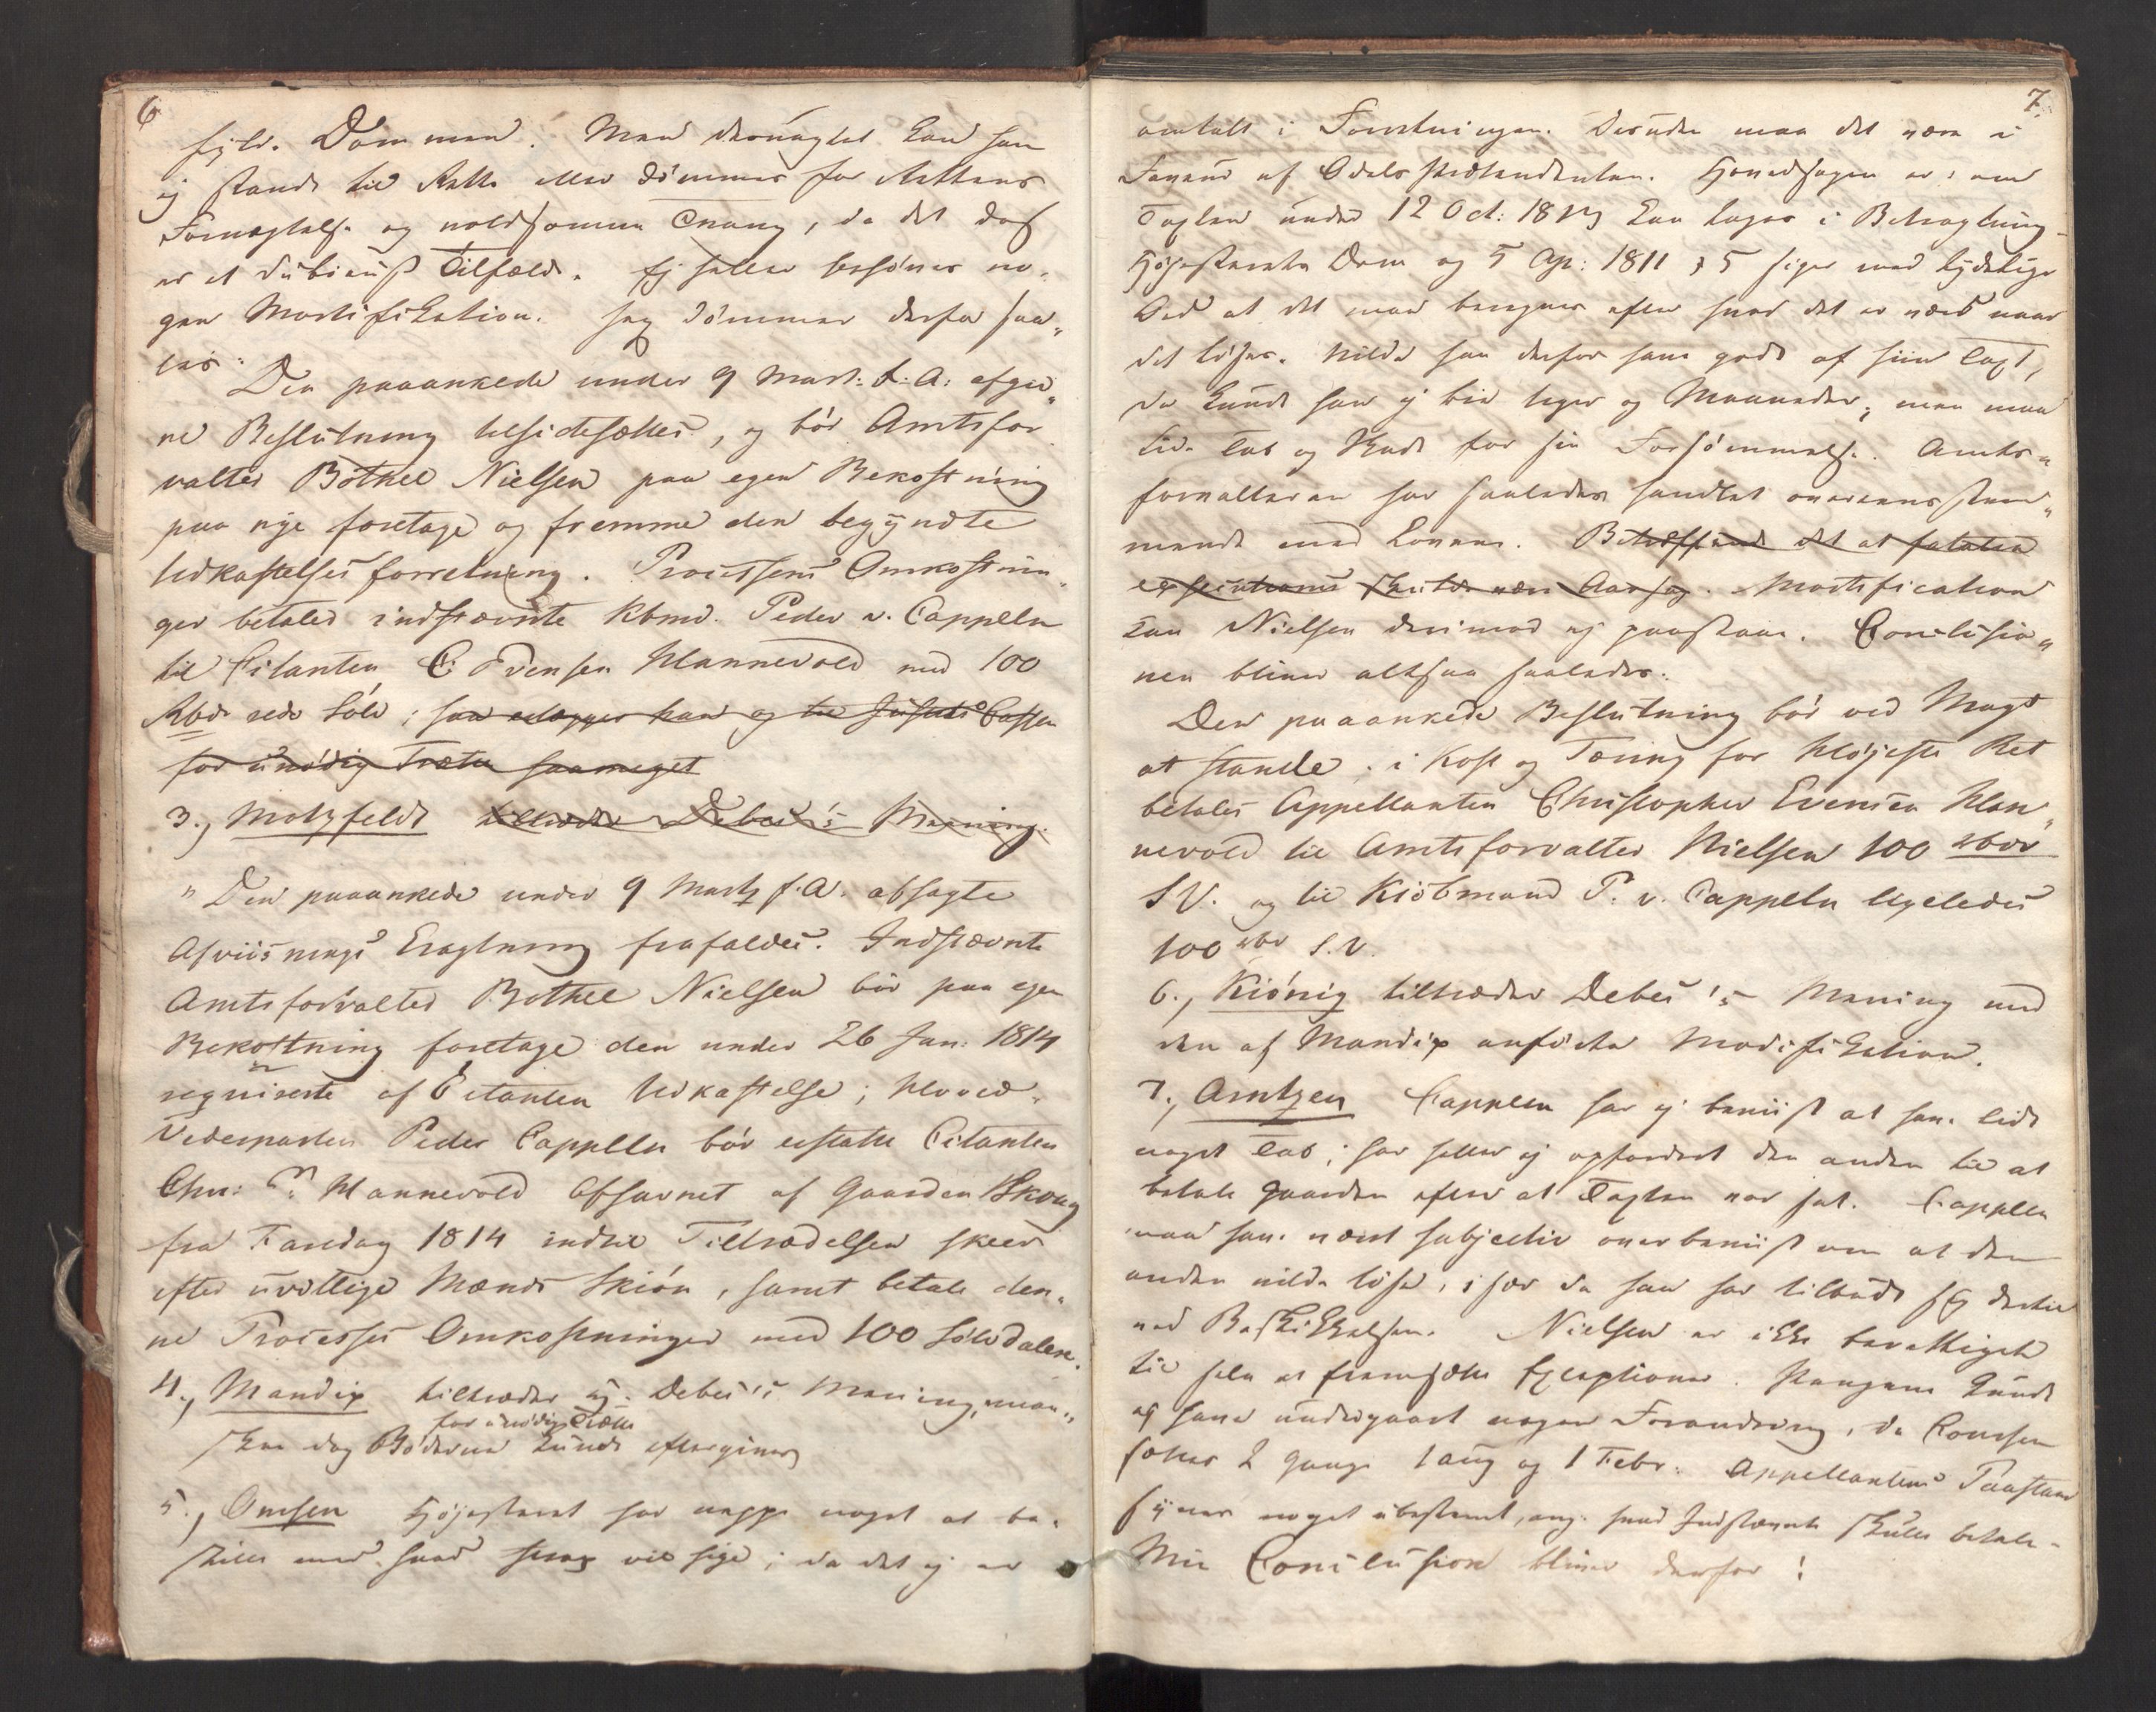 6
fyld. Dommen. Men desuagtet kan han
ej stande til Rette eller dømmes for Rettens
Fornægtelse og voldsomme Tvang, da det dog
er et dubieust Tilfælde. Ej heller behöves no-
gen Mortifikation. Jeg dömmer derfor saa„
les:
Den paaankede under 9 Mart: f: A: afgiv„
ne Beslutning tilsidesættes, og bör Amtsfor
valter Bothel Nielsen paa egen Bekostning
paa nye foretage og fremme den begÿndte
Udkastelsesforretning. Processens Omkostnin„
ger betaler indstævnte Kbmd. Peder v. Cappelen
til Citanten C. Evensen Hannevold med 100
Rbdr rede Sölv; saa erlægger han og til Justits Cassen
for unödig Trætte saameget
3., Motzfeldt tiltræder Debes's Mening.
" Den paaankede under 9 Martz f. A. afsagte
Afviisnings Eragtning frafaldes. Indstævnte
Amtsforvalter Bothel Nielsen bör paa egen
Bekostning foretage den under 26 Jan: 1814
requirerte af Citanten Udkastelse; Hoved-
Vederparten Peder Cappelen bör erstatte Citanten
Chr: E. Hannevold Afsavnet af Gaarden Skoug
fra Faredag 1814 indtil Tiltrædelsen skeer
efter uvillige Mænds Skiön, samt betale den„
ne Processes Omkostninger med 100 Sölvdaler.
4., Mandix tiltræder og Debes's Mening, men„
for unödig Trætte
skee dog Böderne kunde eftergives
5., Omsen Höjesteret har neppe noget at be-
stille med hvad Skrap vil sige; da det ej er
7.
omtalt i Forretningen. Desuden maa det være i
Favør af Odels Prætendenten. Hovedsagen er: om
Taxten under 12 Oct: 1813 kan tages i Betragtning
Höjesterets Dom og 5 Apr: 1811 § 5 siger med tydelige
Ord at det maa beregnes efter hvad det er værd naar
det löses. Vilde han derfor have godt af sin Taxt,
da kunde han ej bie Uger og Maaneder; men maa
lide Tab og Skade for sin Forsömmelse. Amts„
forvalteren har saaledes handlet overeensstem„
mende med Loven. Betræffende det at
Mortification
kan Nielsen derimod ej paastaae. Conclusio„
nen bliver altsaa saaledes:
Den paaankede Beslutning bör ved Magt
at stande. i Kost og Tæring for Höjeste Ret
betaler Appellanten Christopher Evensen Han„
nevold til Amtsforvalter Nielsen 100 rbdr
S.V. og til Kiöbmand P. v. Cappelen ligeledes
100 rbd S.V.
6., Kiönig tiltræder Debes's Mening med
den af Mandix anförte Modifikation.
7., Arntzen Cappelen har ej beviist at have lidt
noget Tab; har heller ej opfordret den anden til at
betale Gaarden efter at Taxten var sat. Cappelen
maa have været subjectiv overbeviist om at den
anden vilde löse, især da han har tilbudt sig dertil
ved Beskikkelsen. Nielsen er ikke berettiget
til selv at fremsætte Exceptioner. Pengene kunde
ej have undergaaet nogen Forandring, da Coursen
sættes 2 Gange 1 Aug og 1 Febr. Appellantens Paastand
synes noget ubestemt, ang. hvad Indstævnte skulle betale.
Min Conclusion bliver derfor: